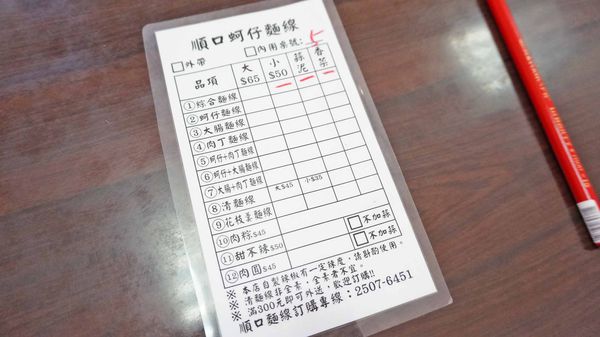 順口蚵仔麵線
□外帶 □內用桌號:5
品項 大$65 小$50 蒜泥 香菜
①綜合麵線
②蚵仔麵線
③大腸麵線
④肉丁麵線
⑤蚵仔+肉丁麵線
⑥蚵仔+大腸麵線
⑦大腸+肉丁麵線
⑧清麵線 大$45 小$35
⑨花枝羹麵線
⑩肉粽$45 □不加蒜
⑪甜不辣$50 □不加蒜
⑫肉圓$45
※ 本店自製辣椒有一定辣度，請斟酌使用。
※ 清麵線非全素，全素者不宜。
※ 滿300元即可外送，歡迎訂購!!
順口麵線訂購專線：2507-6451